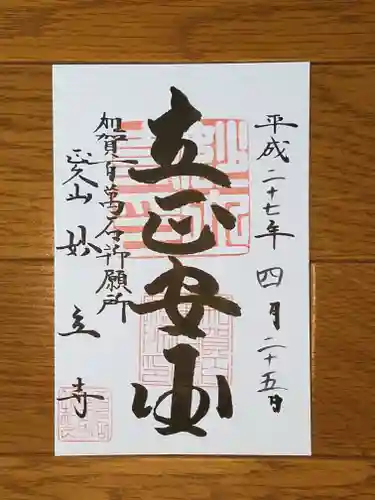 平成二十七年四月二十五日
立正安国
加賀百萬石御願所
正久山 妙立寺